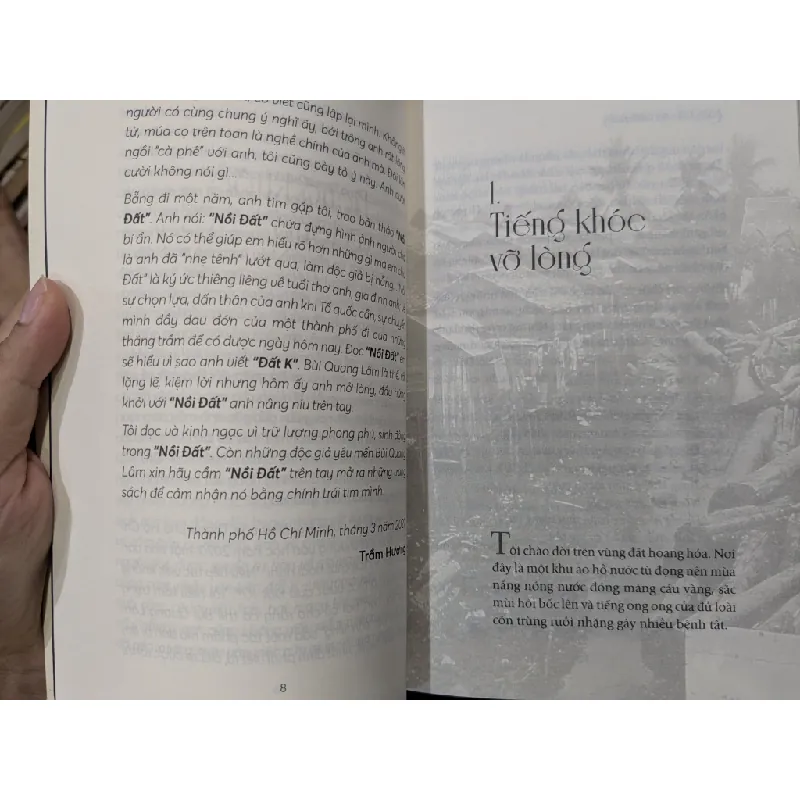 viết cũng lặp lại mình. Không
người có cùng chung ý nghĩ ấy, bởi trông anh rất
tử, múa cọ trên toan là nghề chính của anh mà. Đôi
ngồi "cà phê" với anh, tôi cũng bày tỏ ý này. Anh
cười không nói gì...
Bẵng đi một năm, anh tìm gặp tôi, trao bản thảo "Nồi
Đất". Anh nói: "Nồi Đất" chứa đựng hình ảnh người
bí ẩn. Nó có thể giúp em hiểu rõ hơn những gì mà em
là anh đã "nhẹ tênh" lướt qua, làm độc giả bị hẫng.
Đất" là ký ức thiêng liêng về tuổi thơ anh, gia đình anh,
sự chọn lựa, dấn thân của anh khi Tổ quốc cần, sự chuyển
mình đầy đau đớn của một thành phố đi qua những
tháng trầm để có được ngày hôm nay. Đọc "Nồi Đất"
sẽ hiểu vì sao anh viết "Đất K". Bùi Quang Lâm là thế,
lặng lẽ kiệm lời nhưng hôm ấy anh mở lòng, đầy hứng
khởi với "Nồi Đất" anh nâng niu trên tay.
Tôi đọc và kinh ngạc vì trữ lượng phong phú, sinh động
trong "Nồi Đất". Còn những độc giả yêu mến Bùi Quang
Lâm xin hãy cầm "Nồi Đất" trên tay mở ra những trang
sách để cảm nhận nó bằng chính trái tim mình.
Thành phố Hồ Chí Minh, tháng 3 năm
Trầm Hương
8
I.
Tiếng khóc
vỡ lòng
Tôi chào đời trên vùng đất hoang hóa. Nơi
đây là một khu ao hồ nước tù đọng nên mùa
nắng nóng nước đóng màng cáu vàng, sặc
mùi hôi bốc lên và tiếng ong ong của đủ loài
côn trùng ruồi nhặng gây nhiều bệnh tật.